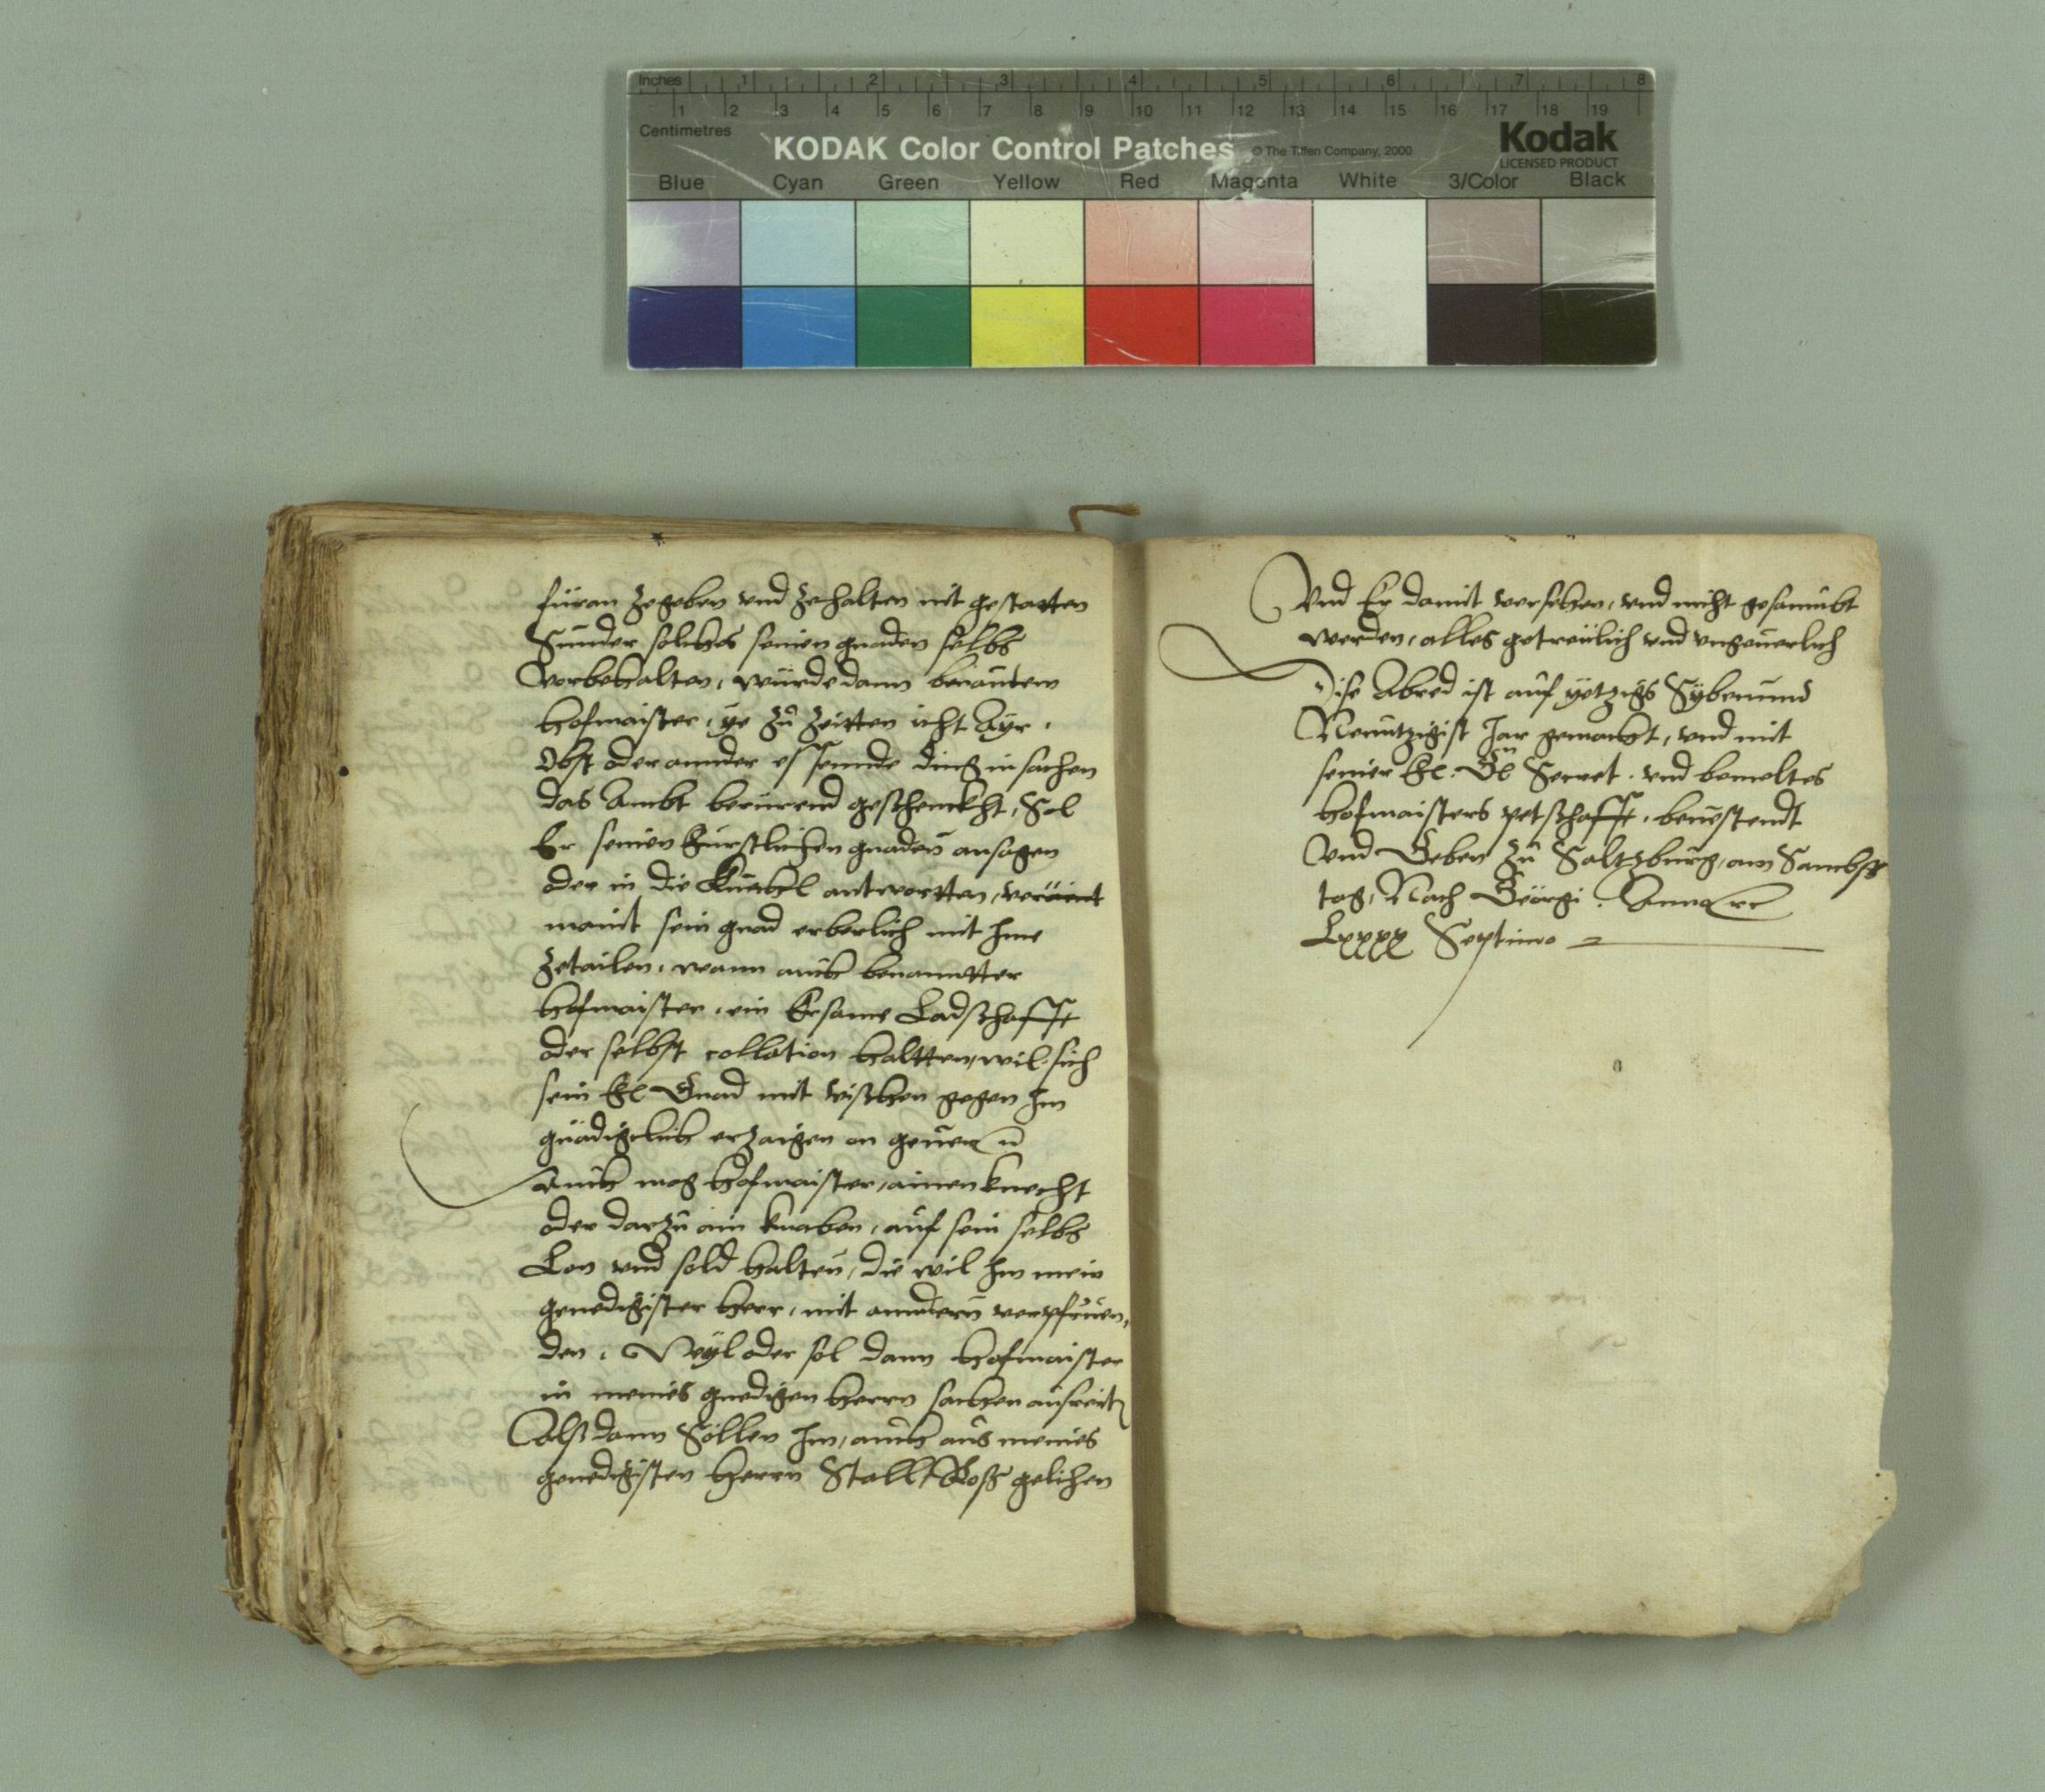 Inches 1 2 3 4 5 6 7 8
1 2 3 4 5 6 7 8 9 10 11 12 13 14 15 16 17 18 19
Centimetres
KODAK Color Control Patches © The Tiffen Company, 2000 Kodak
LICENSED PRODUCT
Blue Cyan Green Yellow Red Magenta White 3/Color Black
füran zegeben vnd zehalten nit gestatten
Sunder solichs seinen gnaden selbs
Vorbehalten, würde dann benantem
hofmaister, ye zů zeitten icht Ayr,
Obst oder annder essennde ding in sachen
das Ambt berürend geschenckht, Sol
Er seinen fürstlichen gnaden ansagen
oder in die Kuchl antwortten,
maint sein gnad erberlich mit Ime
zetailen, wann auch benanntter
hofmaister, ein Ersame Ladschafft
oder selbst collation haltten, wil sich
sein fl Gnad mit vischen gegen Im
gnädigclich erzaigen on geuer
Auch mag hofmaister, ainen knecht
oder darzů ain knaben, auf sein selbs
Lon vnd sold halten, die wil Im mein
genedigister herr, mit anndern verpfrüen,
den, Weyl oder sol dann hofmaister
in meines gnedigen herrn sachen ausreit
Alsdann Söllen Im, auch aus meines
genedigisten herrn Stall Ross gelihen
Vnd Er damit versehen, vnd nicht gesaumbt
werden, alles getreülich vnd vngeuerlich
Dise Abred ist auf yetzigs Sybenund
Neuntzigist Jar gemacht, vnd mit
seiner fl: Gn Secret. vnd bemeltes
hofmaisters petschafft, beuestendt
Vnd Geben zů Saltzburg, am Sambss
tag, Nach Geörgi Anno
Lxxxx Septimo